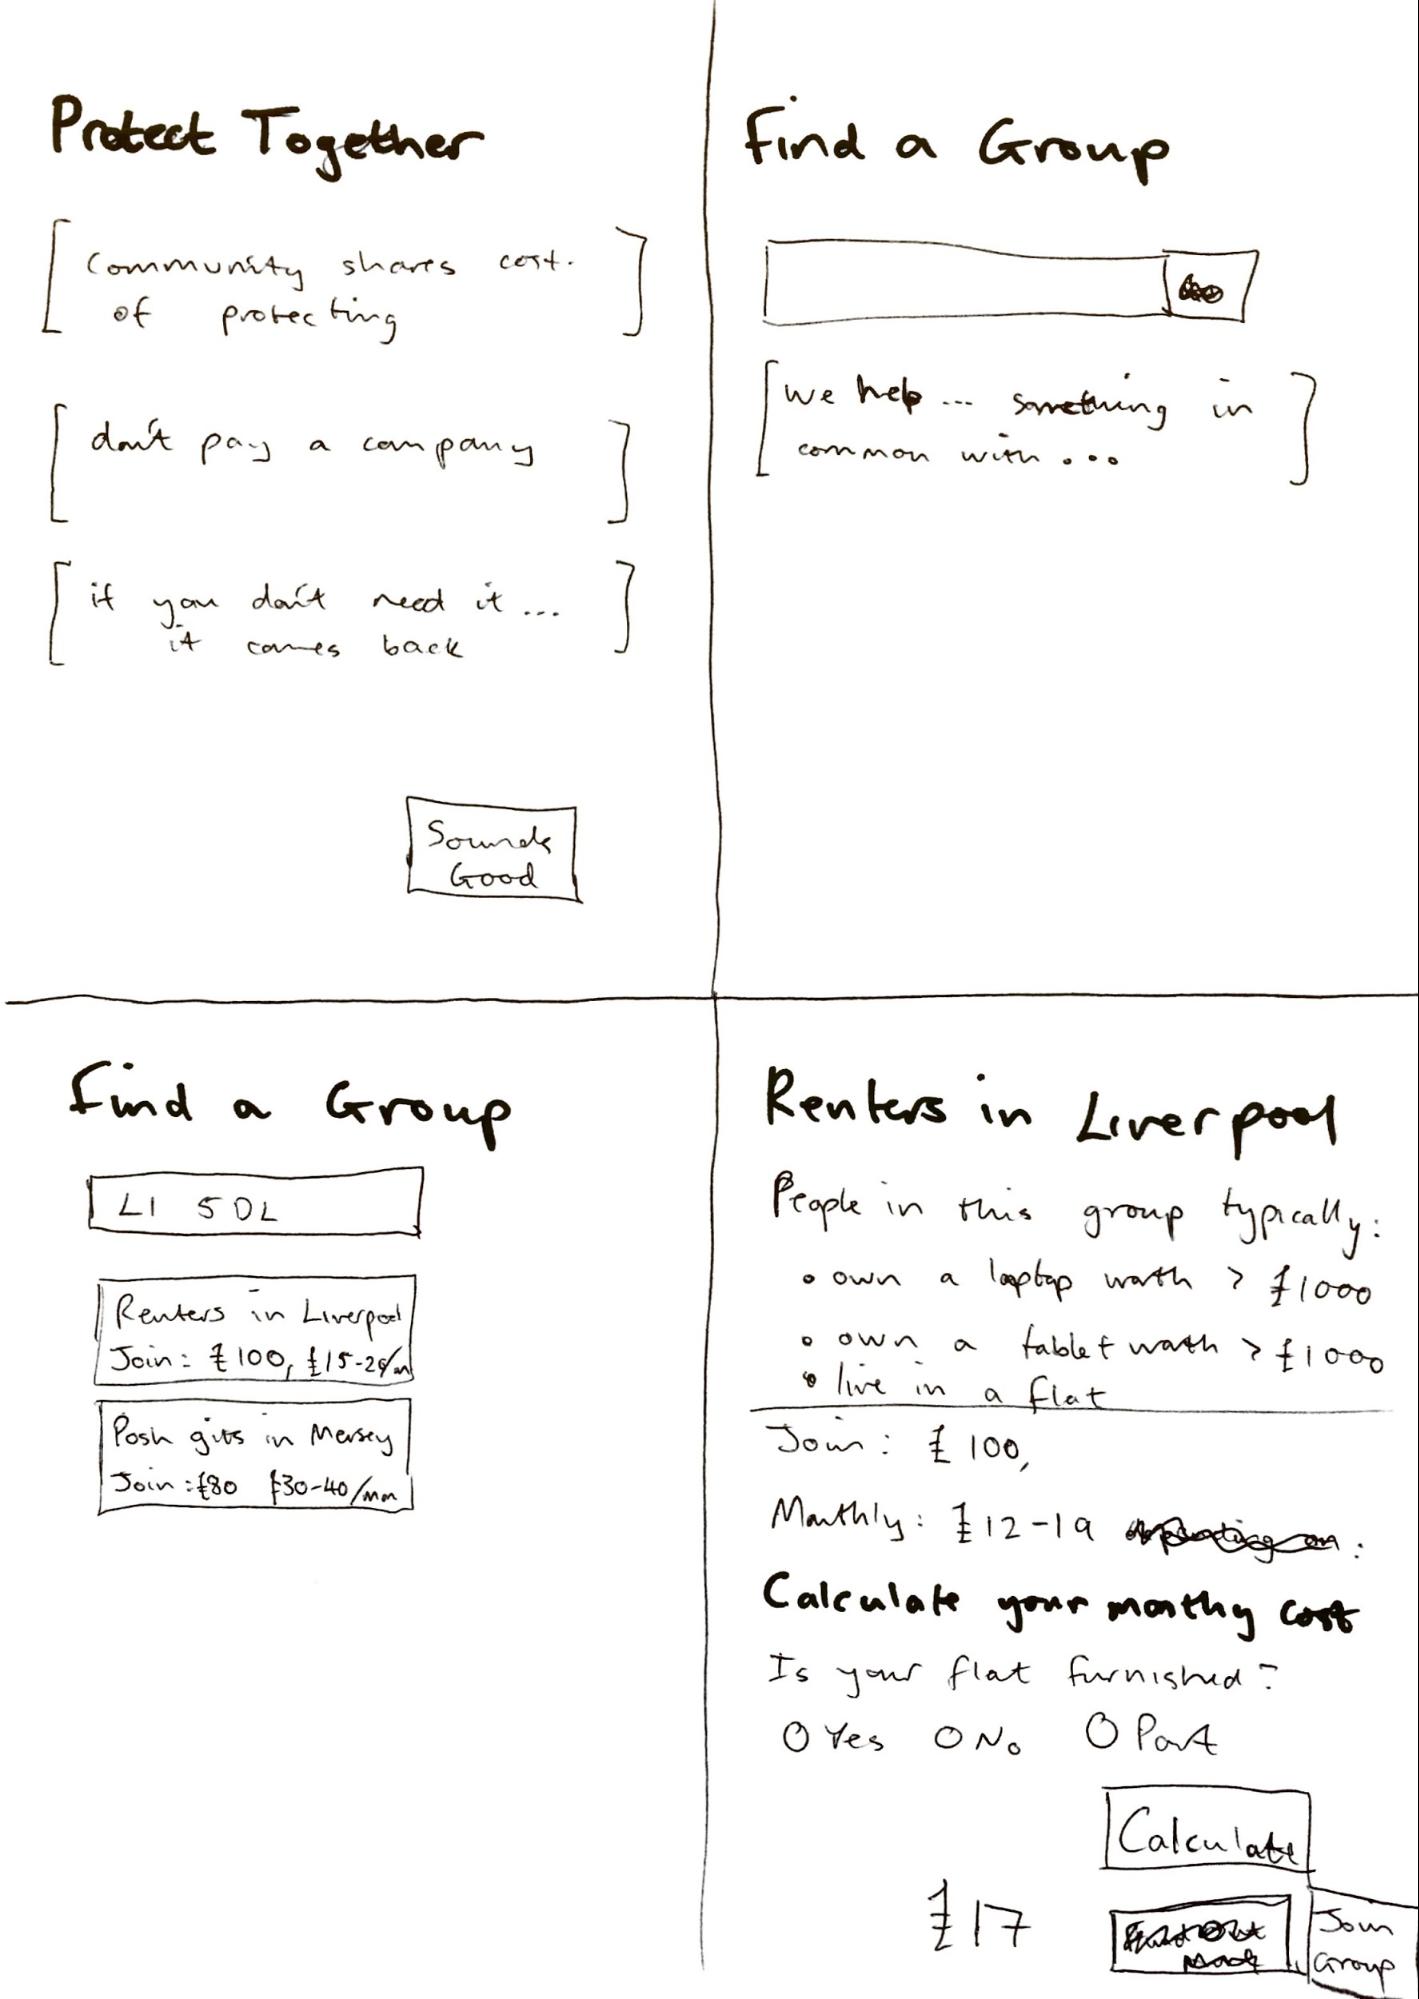 Protect Together
[ Community shares cost.
of protecting ]
[ don't pay a company ]
[ if you don't need it...
it comes back ]
Sounds
Good
Find a Group
[ we help ... something in
common with ... ]
Find a Group
L1 5DL
Renters in Liverpool
Join: £100, £15-20/m
Posh gits in Mersey
Join: £80 £30-40/mon
Renters in Liverpool
People in this group typically:
• own a laptop worth > £1000
• own a tablet worth > £1000
• live in a flat
Join: £100,
Monthly: £12-19 :
Calculate your monthy cost
Is your flat furnished?
O Yes O No O Part
Calculate
£17
Join
Group